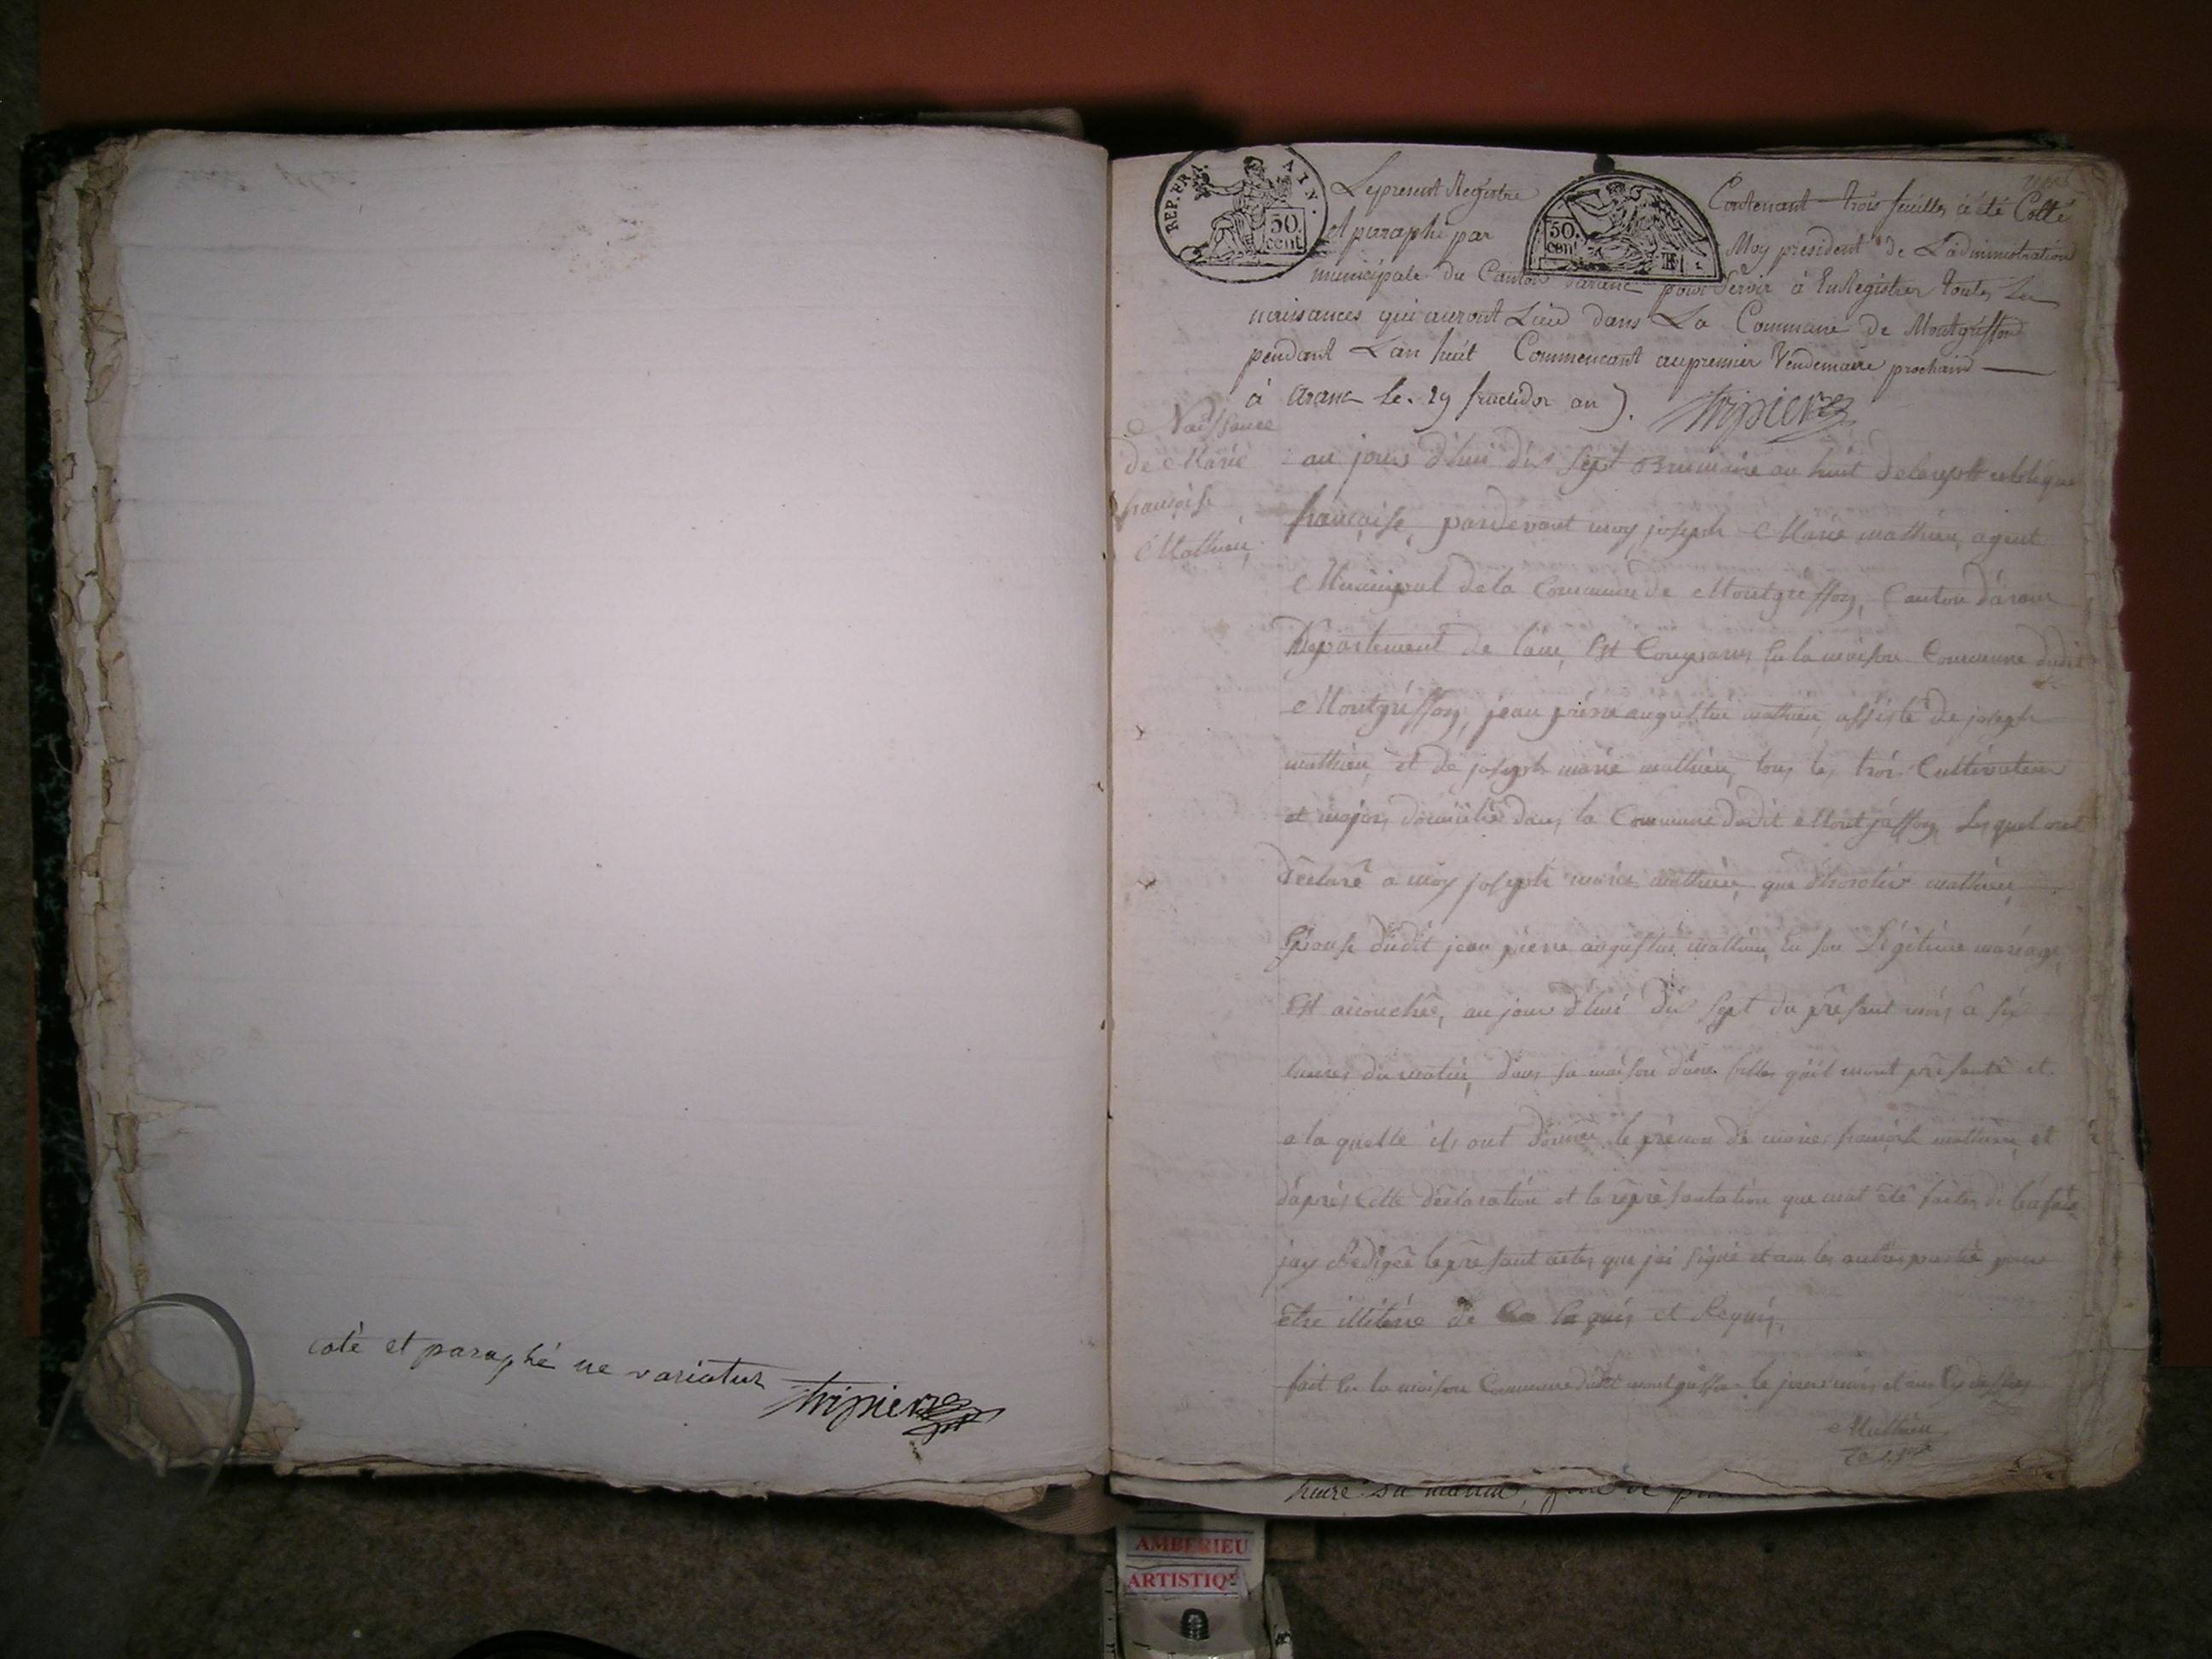 coté et paraphé ne variatur
tripier
REP. FRA. AIN.
50. cent
50. cent
Le present Registre Contenant trois feuilles a été Cotté
et paraphé par Moy president de L'administration
municipale du Canton d'aranc pour Servir à EnRegistrer toutes Les
naissances qui auront Lieu dans La Commune de Montgriffon
pendant L'an huit Commencant au premier Vendemiaire prochain
à Aranc le 29 fructidor an 7. tripier
Naissance
de Marie
françoise
Mathieu
au jour d'hui dix sept Brumaire an huit de la republique
française, pardevant moy joseph Marie mathieu, agent
Municipal de la Commune de Montgriffon, Canton d'aranc
Département de l'ain, Est Comparus En la maison Commune dudit
Montgriffon, jean pierre augustin mathieu, assisté de joseph
mathieu, et de joseph marie mathieu, tous les trois Cultivateur
et majors domicilié dans la Commune dudit Les quel ont
Déclaré a moy joseph marie mathieu, que mathieu,
Epouse dudit jean pierre augustin mathieu, En son Légitime mariage,
Est accouchée, au jour d'hui dix sept du présant mois à six
heures du matin, dans sa maison d'une fille qu'il mont présanté et
a la quelle ils ont donné le prénom de marie françoise mathieu, et
d'après cette déclaration et la représantation que mat été faites de
jay Rédigée le présant actes que jai signé et non les autres pour
etre illitéré de Enquis et Requis.
fait En la maison Commune dudit montgriffon le jour mois et an Cy dessus
Mathieu
heure du matin,
AMBERIEU
ARTISTIQ